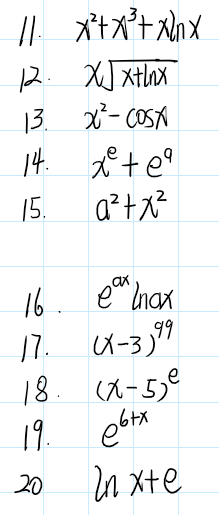 11. x²+x³+xlnx
12. x√(x+lnx)
13. x²-cosx
14. xᵉ+e⁹
15. a²+x²
16. eᵃˣlnax
17. (x-3)⁹⁹
18. (x-5)ᵉ
19. e⁶⁺ˣ
20 ln x+e